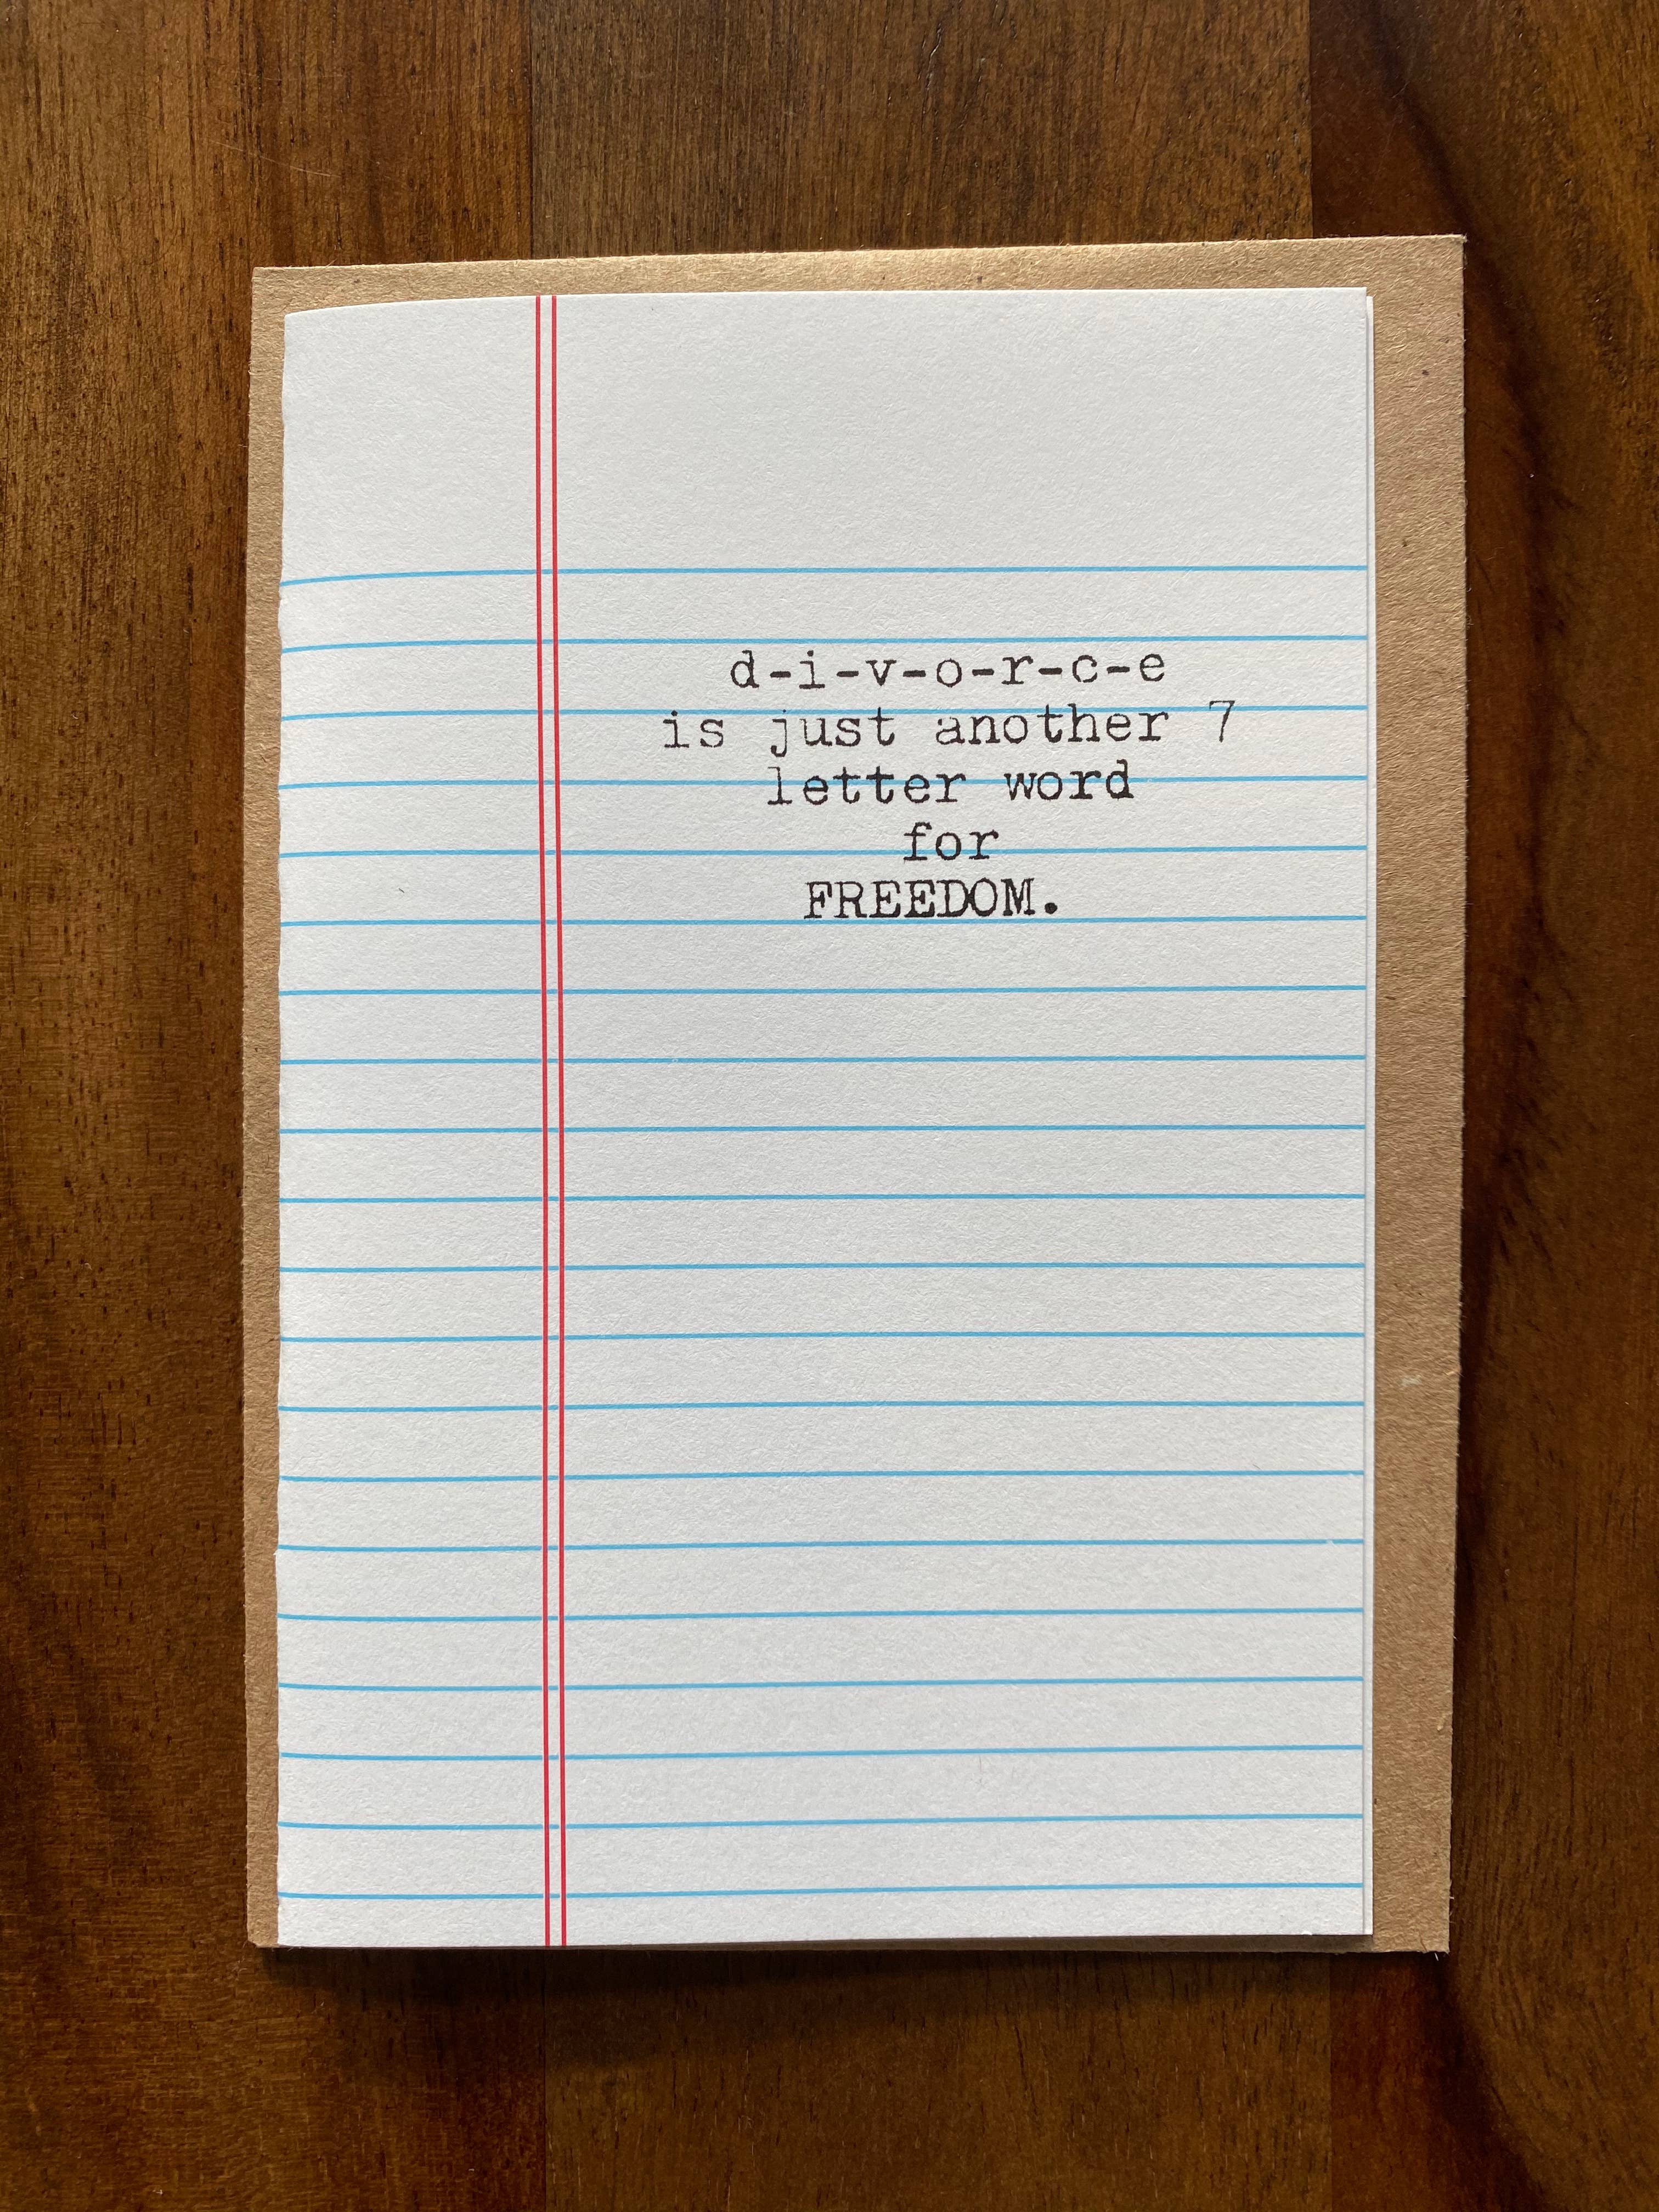 d-i-v-o-r-c-e
is just another 7
letter word
for
FREEDOM.